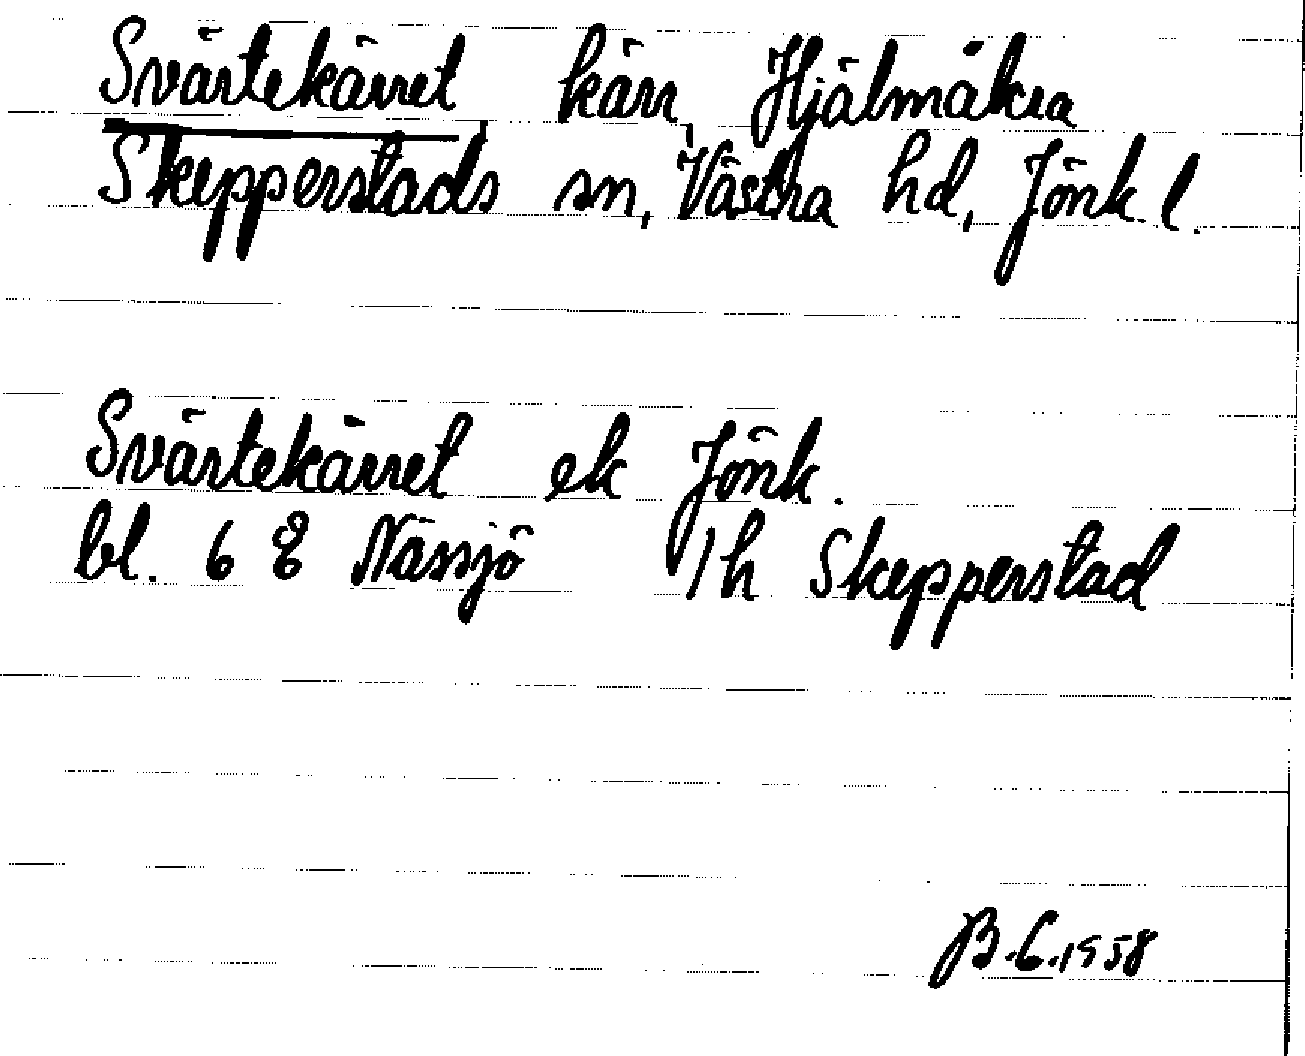 Svärtekärret, kärr, Hjälmåkra
Skepperstads sn, Västra hd, Jönk. l.
Svärtekärret ek Jönk.
bl. 6 E Nässjö 1h Skepperstad
B.C. 1958